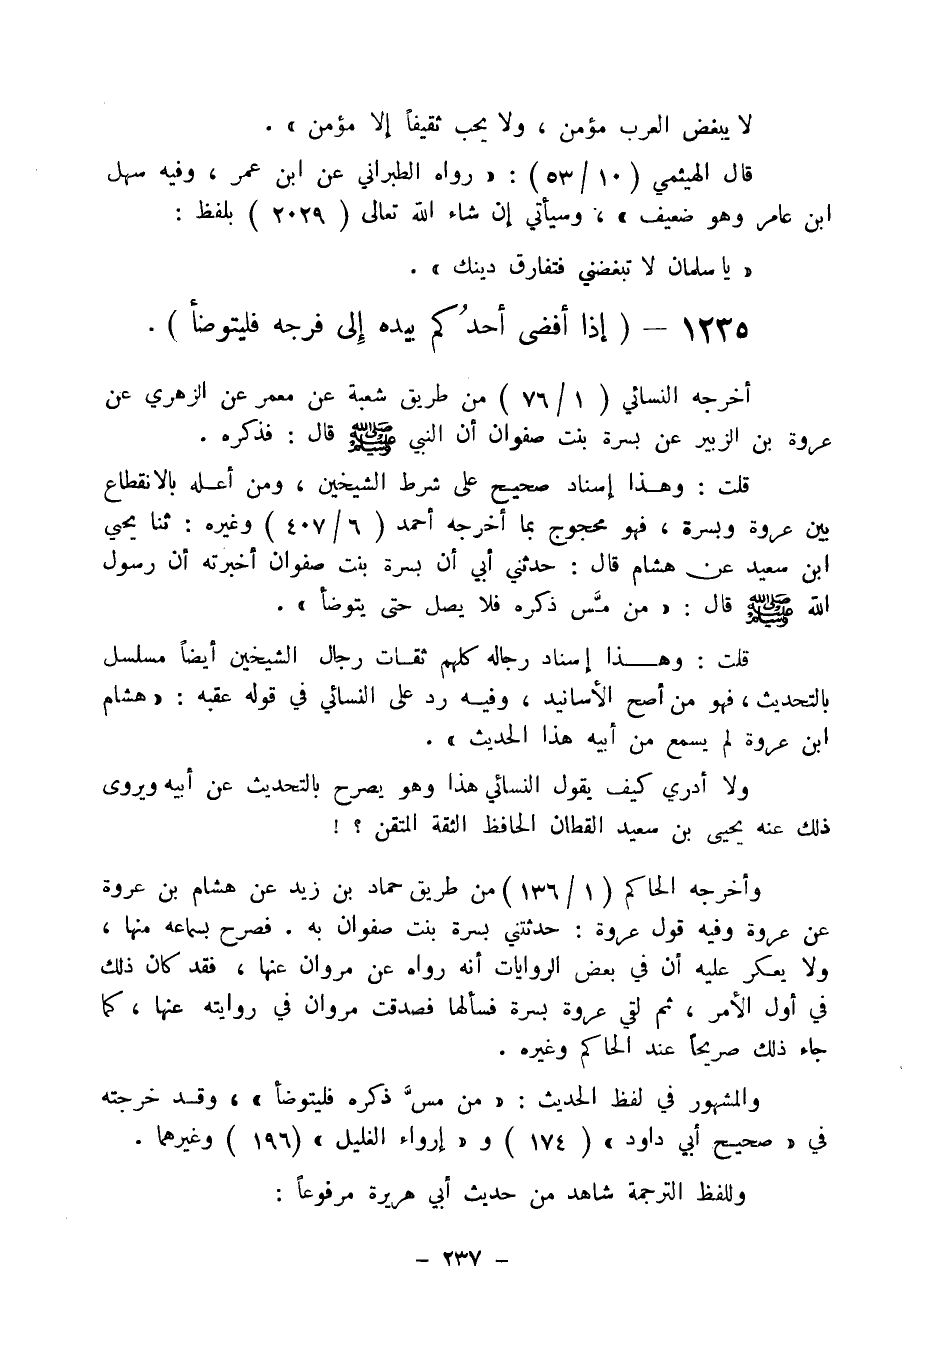 لا يبغض العرب مؤمن ، ولا يحب ثقيفاً إلا مؤمن » .
قال الهيثمي ( ١٠ / ٥٣ ) : « رواه الطبراني عن ابن عمر ، وفيه سهل
ابن عامر وهو ضعيف » ، وسيأتي إن شاء الله تعالى ( ٢٠٢٩ ) بلفظ :
« يا سلمان لا تبغضني فتفارق دينك » .
١٢٣٥ – ( إذا أفضى أحدُكم بيده إلى فرجه فليتوضأ ) .
أخرجه النسائي ( ١ / ٧٦ ) من طريق شعبة عن معمر عن الزهري عن
عروة بن الزبير عن بسرة بنت صفوان أن النبي ﷺ قال : فذكره .
قلت : وهـذا إسناد صحيح على شرط الشيخين ، ومن أعـله بالانقطاع
بين عروة وبسرة ، فهو محجوج بما أخرجه أحمد ( ٦ / ٤٠٧ ) وغيره : ثنا يحيى
ابن سعيد عن هشام قال : حدثني أبي أن بسرة بنت صفوان أخبرته أن رسول
الله ﷺ قال : « من مسَّ ذكره فلا يصل حتى يتوضأ » .
قلت : وهـــذا إسناد رجاله كلهم ثقـات رجال الشيخين أيضاً مسلسل
بالتحديث ، فهو من أصح الأسانيد ، وفيـه رد على النسائي في قوله عقبه : « هشام
ابن عروة لم يسمع من أبيه هذا الحديث » .
ولا أدري كيف يقول النسائي هذا وهو يصرح بالتحديث عن أبيه ويروى
ذلك عنه يحيى بن سعيد القطان الحافظ الثقة المتقن ؟ !
وأخرجه الحاكم ( ١ / ١٣٦ ) من طريق حماد بن زيد عن هشام بن عروة
عن عروة وفيه قول عروة : حدثتني بسرة بنت صفوان به . فصرح بسماعه منها ،
ولا يعكر عليه أن في بعض الروايات أنه رواه عن مروان عنها ، فقد كان ذلك
في أول الأمر ، ثم لقي عروة بسرة فسألها فصدقت مروان في روايته عنها ، كما
جاء ذلك صريحاً عند الحاكم وغيره .
والمشهور في لفظ الحديث : « من مسَّ ذكره فليتوضأ » ، وقـد خرجته
في « صحيح أبي داود » ( ١٧٤ ) و « إرواء الغليل » (١٩٦ ) وغيرهما .
وللفظ الترجمة شاهد من حديث أبي هريرة مرفوعاً :
– ٢٣٧ –